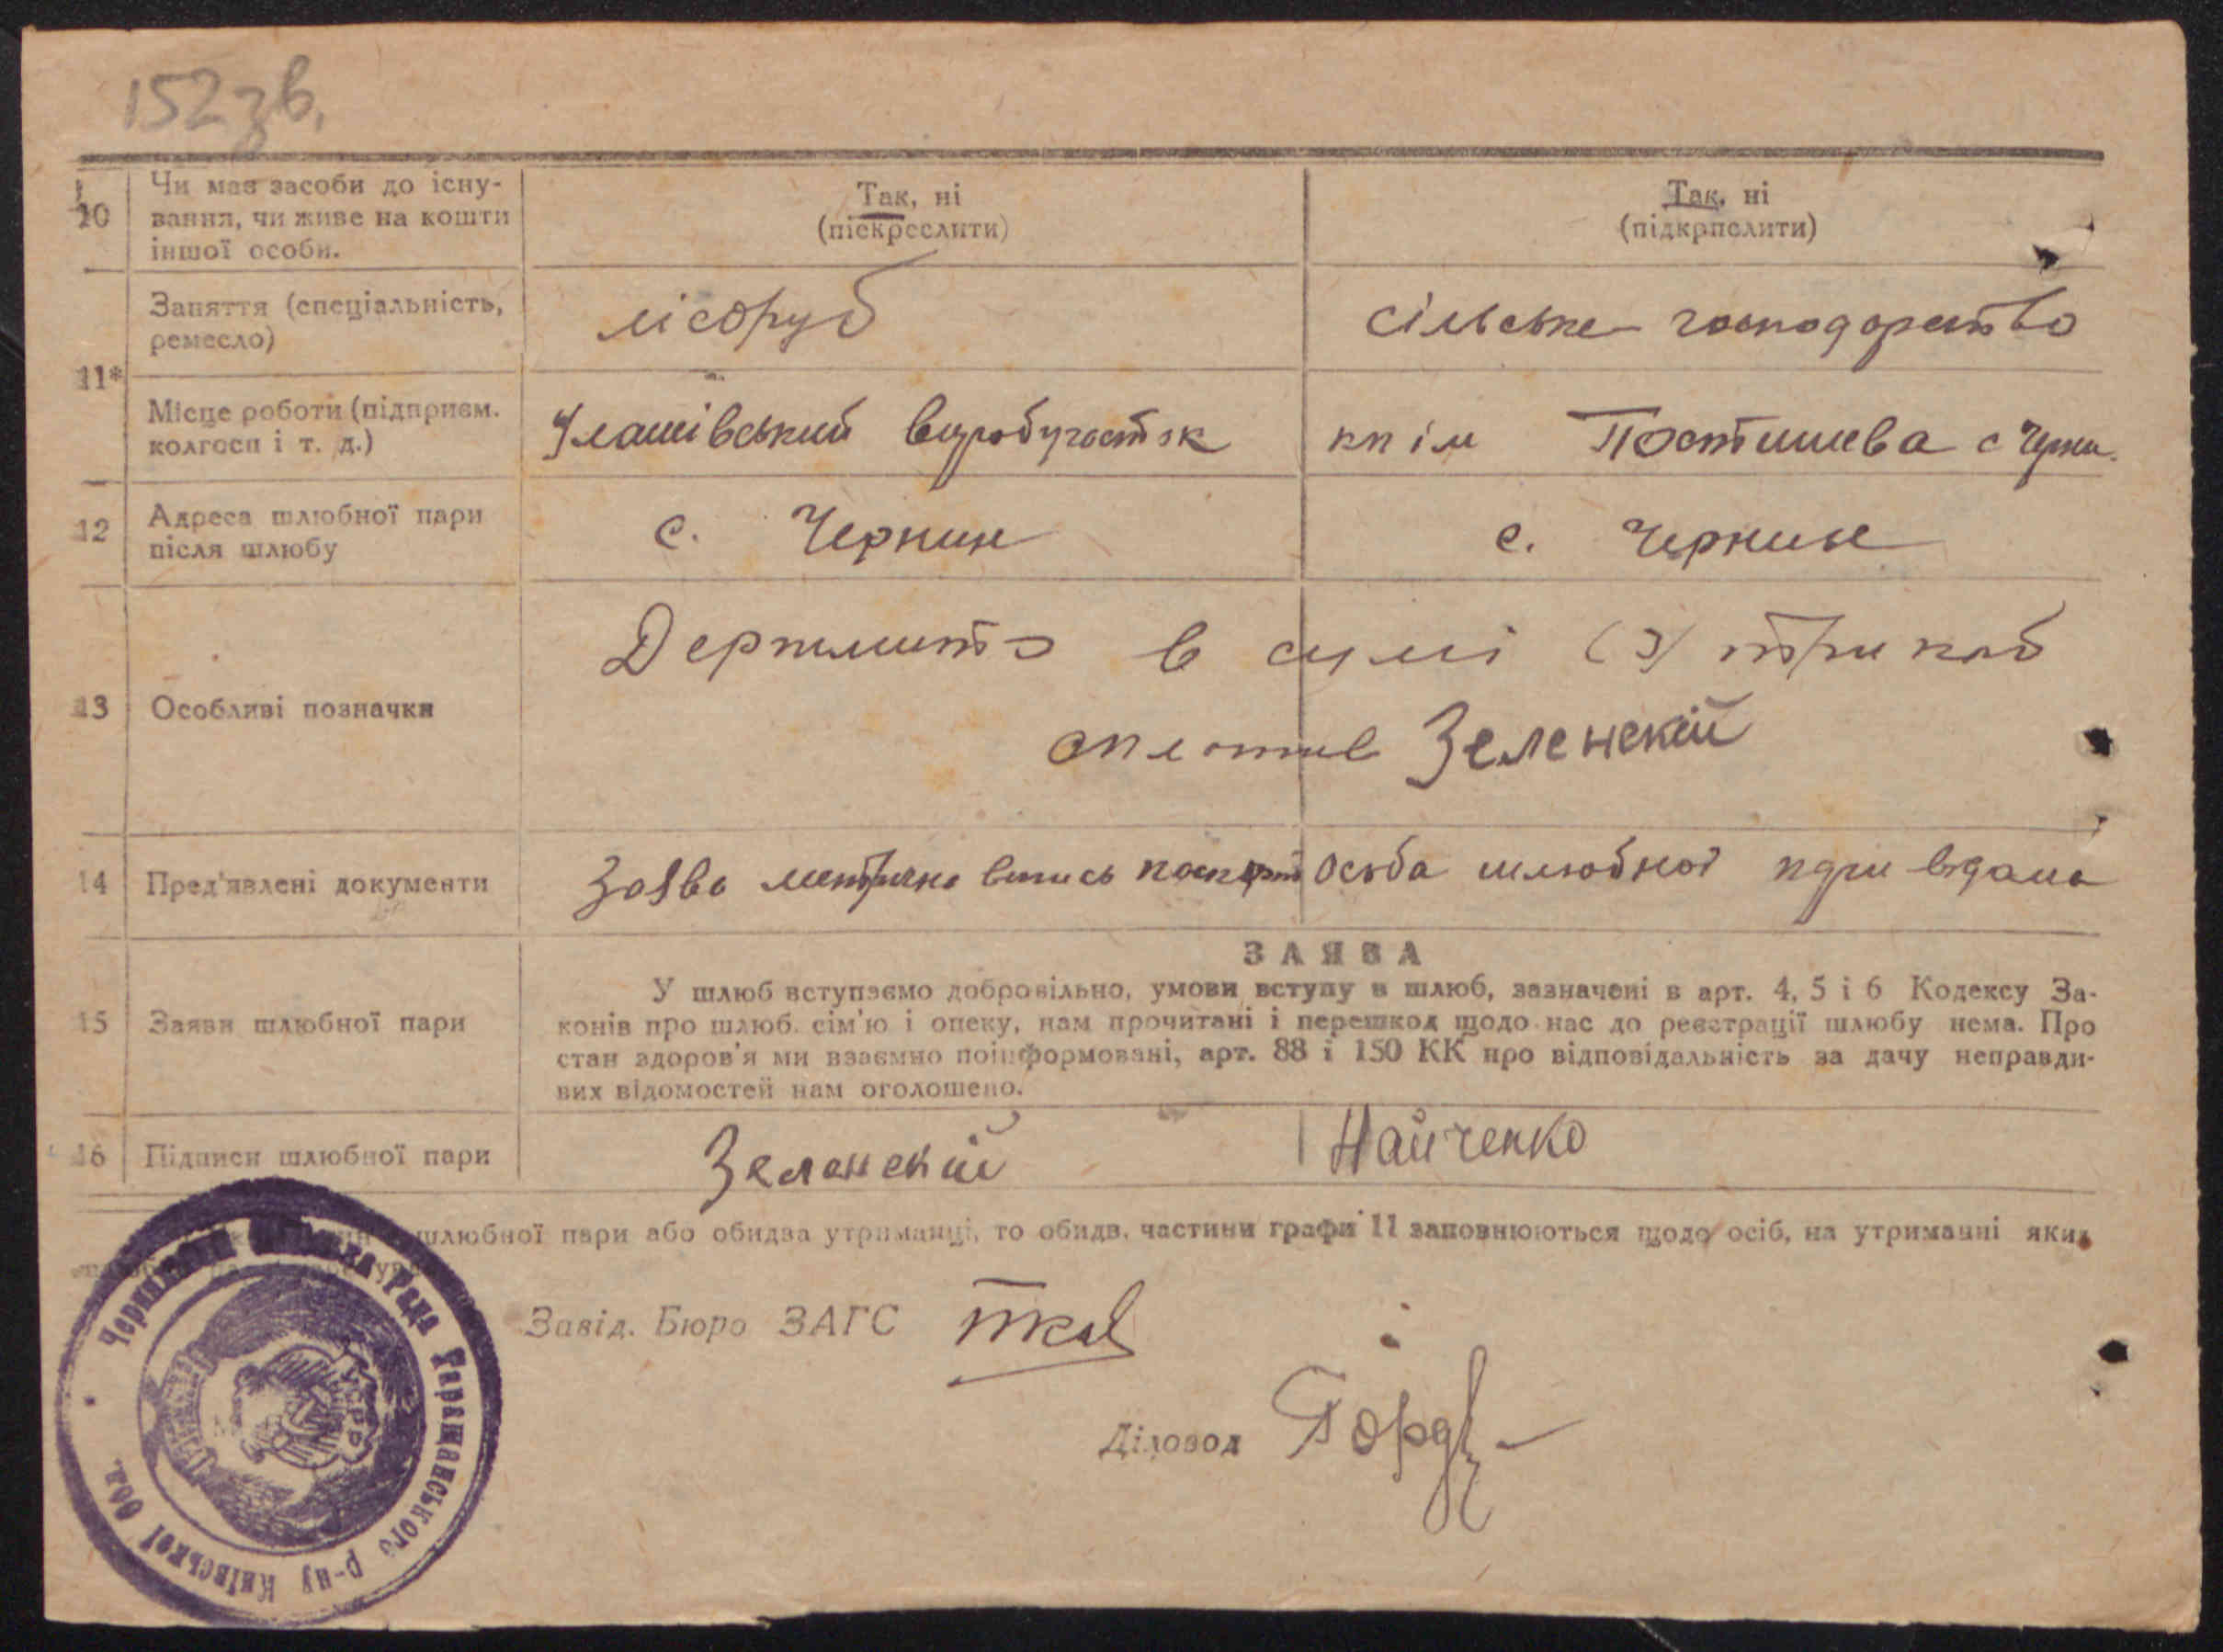 152 зв.
10
Чи має засоби до існу-
вання, чи живе на кошти
іншої особи.
Так, ні
(піскреслити)
Так, ні
(підкрпслити)
11*
Заняття (спеціальність,
ремесло)
лісоруб
сільське господарство
Місце роботи (підприєм.
колгосп і т. д.)
виробучасток
кп ім Постишева с Черни.
12
Адреса шлюбної пари
після шлюбу
с. Чернин
с. Чернин
13
Особливі позначки
Держмито в сумі (3) три карб
оплатив Зеленский
14
Пред'явлені документи
Заява метрична випись паспорт особа шлюбної пари відома
ЗАЯВА
15
Заяви шлюбної пари
У шлюб вступаємо добровільно, умови вступу в шлюб, зазначені в арт. 4, 5 і 6 Кодексу За-
конів про шлюб. сім'ю і опеку, нам прочитані і перешкод щодо нас до реєстрації шлюбу нема. Про
стан здоров'я ми взаємно поінформовані, арт. 88 і 150 КК про відповідальність за дачу неправди-
вих відомостей нам оголошено.
16
Підписи шлюбної пари
Зеленский
Найченко
шлюбної пари або обидва утриманці, то обидв. частини графи 11 заповнюються щодо осіб, на утриманні яких
Завід. Бюро ЗАГС
Діловод
Рада Таращанського р-ну Київської Обл.